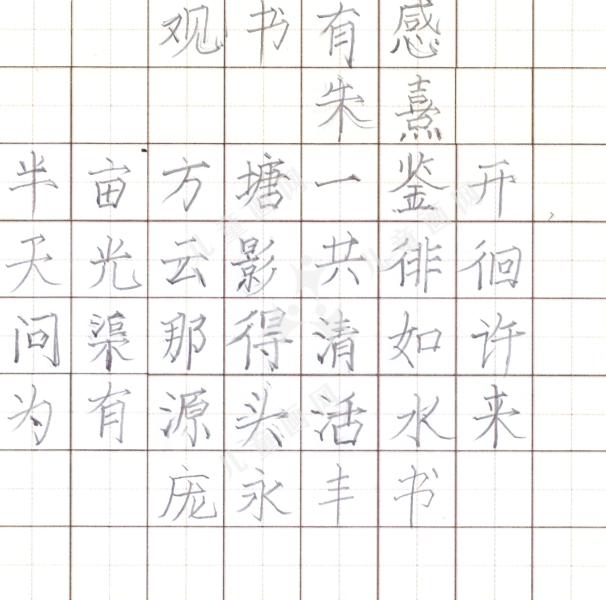 观书有感
朱熹
半亩方塘一鉴开,
天光云影共徘徊
问渠那得清如许
为有源头活水来
庞永丰书